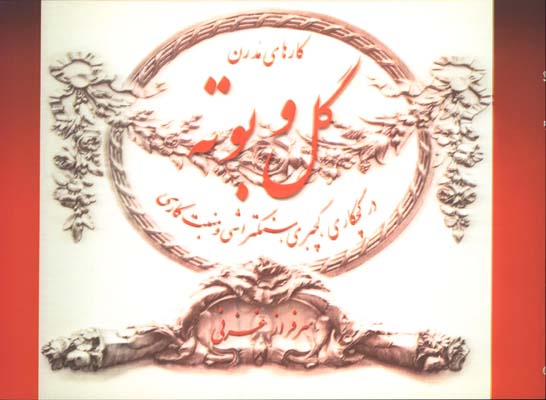 کارهای مدرن
گل و بوته
در گچکاری، گچبری، سنگتراشی و منبت کاری
سرفراز غزنی